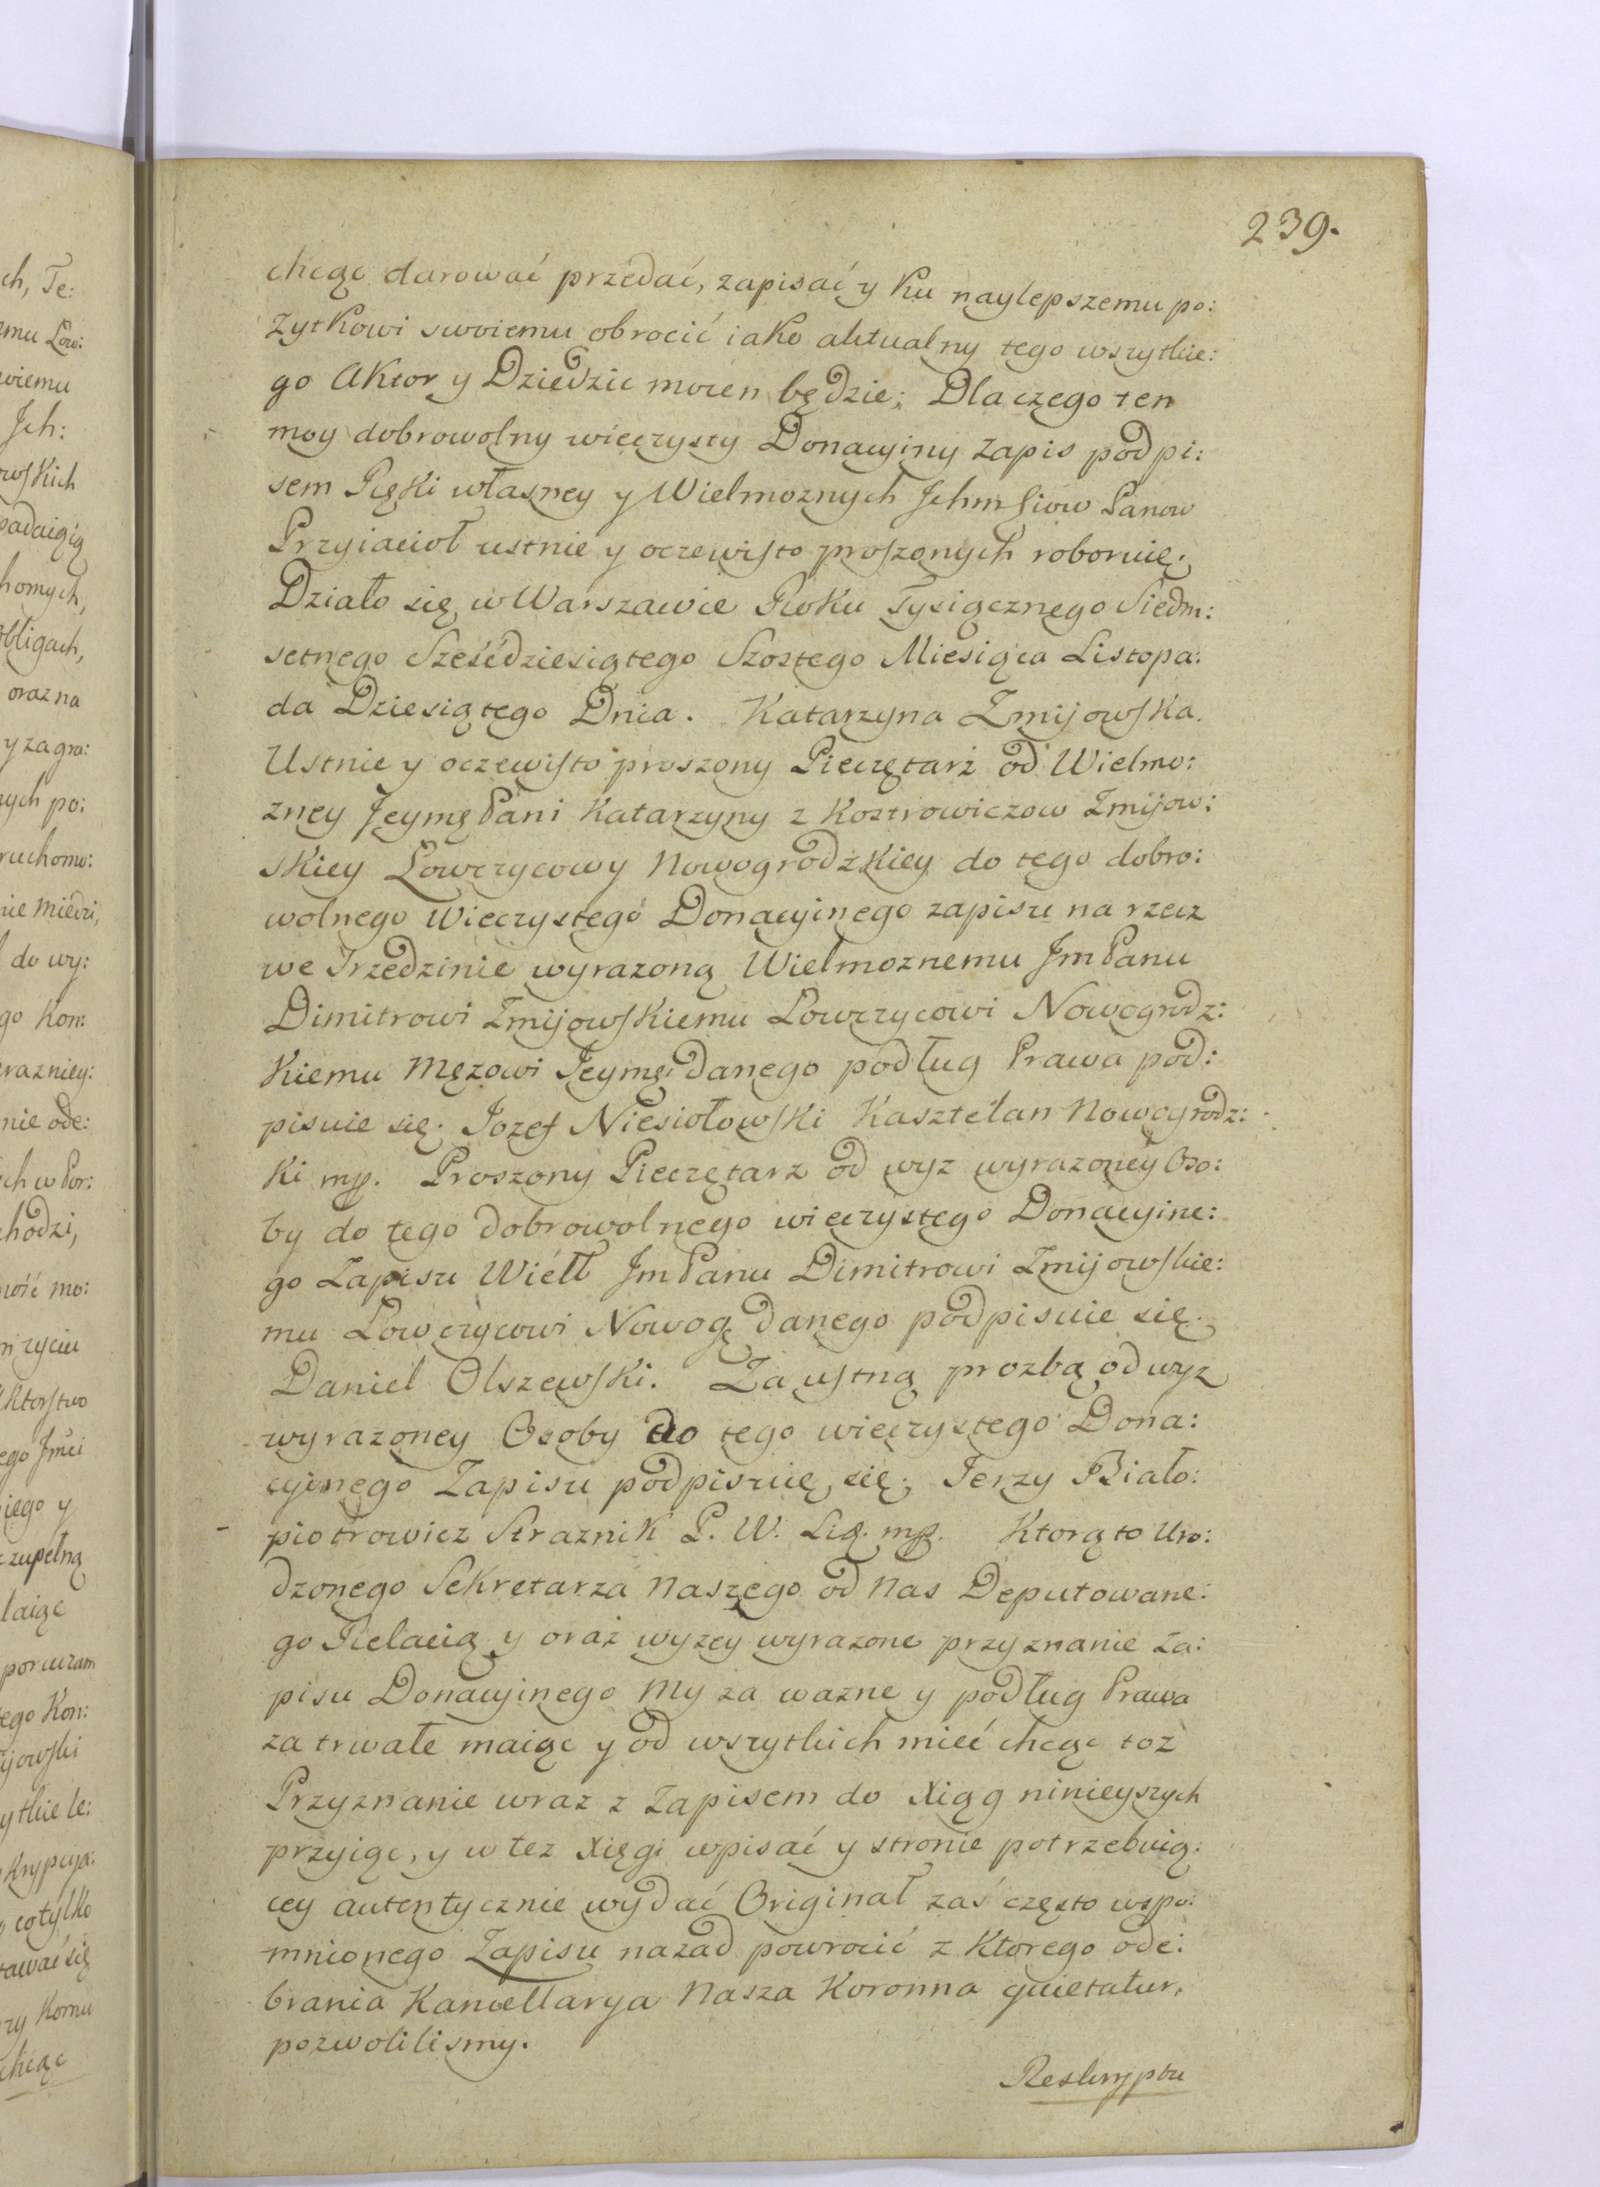 239.
chcąc darować przedać, zapisać y ku naylepszemu po:
zytkowi swoiemu obrocić iako aktualny tego wszytkie:
go Aktor y Dziedzic mocen będzie; Dla czego ten
moy dobrowolny wieczysty Donacyiny zapis podpi:
sem Ręki własney y Wielmoznych Jchmsciow Panow
Przyiacioł ustnie y oczewisto proszonych roboruię.
Działo się w Warszawie Roku Tysiącznego Siedm:
setnego Sześćdziesiątego Szostego Miesiąca Listopa:
da Dziesiątego Dnia. Katarzyna Zmijowska.
Ustnie y oczewisto proszony Pieczętarz od Wielmo:
zney Jeymę Pani Katarzyny z Kostrowiczow Zmijow:
skiey Łowczycowy Nowogrodzkiey do tego dobro:
wolnego Wieczystego Donacyinego zapisu na rzecz
we srzedzinie wyrazoną Wielmoznemu Jm Panu
Dimitrowi Zmijowskiemu Łowczycowi Nowogrodz:
kiemu Męzowi Jeymę danego podług Prawa pod:
pisuie się. Jozef Niesiołowski Kasztelan Nowogrodz:
ki mp. Proszony Pieczętarz od wyz wyrazoney Oso:
by do tego dobrowolnego wieczystego Donacyine:
go Zapisu Wielł Jm Panu Dimitrowi Zmijowskie:
mu Łowczycowi Nowog danego podpisuie się.
Daniel Olszewski. Za ustną prozbą od wyz
wyrazoney Osoby do tego wieczystego Dona:
cyinego Zapisu podpisuię się. Jerzy Biało:
piotrowicz Straznik P. W. Lit. mp. Ktorą to Uro:
dzonego Sekretarza Naszego od Nas Deputowane:
go Relacią y oraz wyzey wyrazone przyznanie Za:
pisu Donacyinego My za wazne y podług Prawa
za trwałe maiąc y od wszytkich mieć chcąc toz
Przyznanie wraz z Zapisem do Xiąg ninieyszych
przyiąc, y w tez Xięgi wpisać y stronie potrzebuią:
cey autentycznie wydać Originał zaś często wspo:
mnionego Zapisu nazad powrocić z ktorego ode:
brania Kancellarya Nasza Koronna quietatur,
pozwolilismy.
Reskryptu